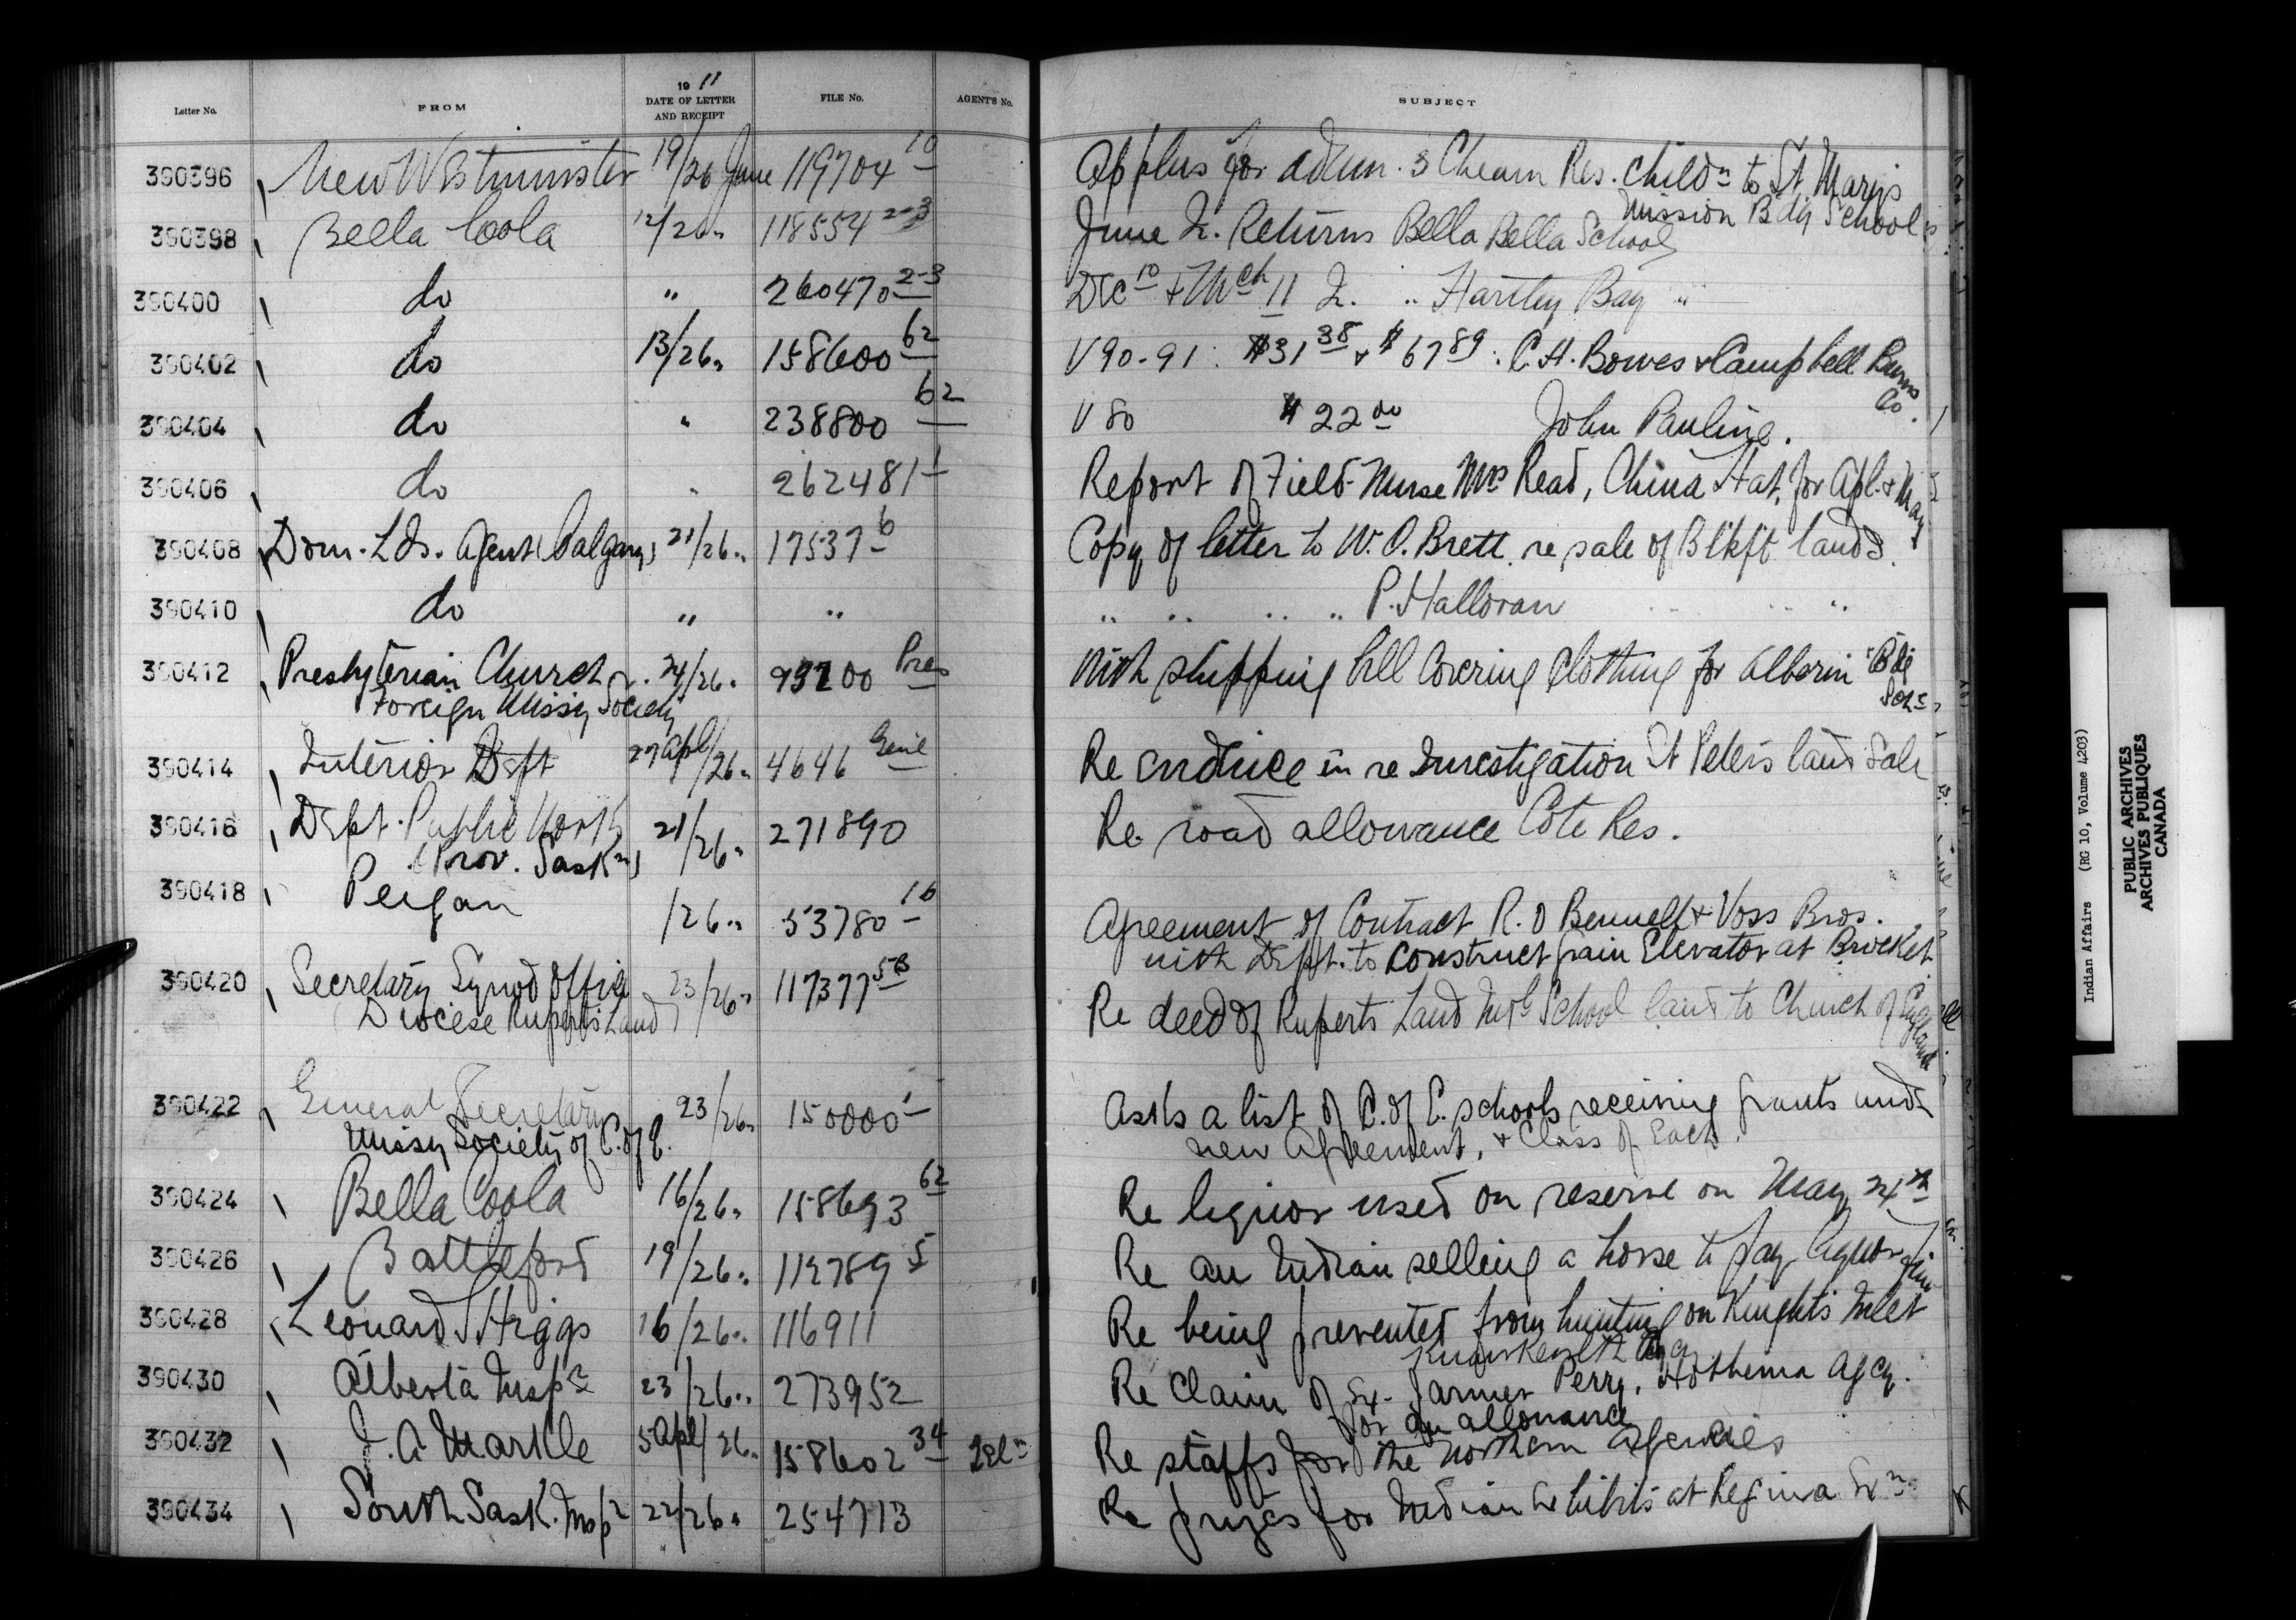 Letter No. FROM 19 11 DATE OF LETTER AND RECEIPT FILE No. AGENT'S No. SUBJECT
390396 New Westminster 19/26 June 119704 10 Applns for admn. 3 Cheam Res. childn to St Marys
Mission Bdg School
390398 Bella Coola 12/26 " 118554 2-3 June Qr. Returns Bella Bella School
390400 do " 260470 2-3 Dec 10 & Mch 11 Qr. " Hartley Bay "
390402 do 13/26 " 158600 62 V 90-91 : $31 38 & $67 89 : C.H. Bowes & Campbell Burns
Co.
390404 do " 238800 62 V 80 $22 00 John Pauline.
390406 do " 262481 1 Report of Field-Nurse Mrs Read, China Hat, for Apl. & May
390408 Dom. Lds. Agent (Calgary) 21/26 " 17537 6 Copy of letter to W.O. Brett re sale of Blkft lands.
390410 do " " " " " " P. Halloran " " "
390412 Presbyterian Church 24/26 " 99200 Pres With shipping bill covering clothing for Alberni Bdg
Foreign Missy Society Sch.
390414 Interior Dept 27 Apl/26 " 4646 Genl Re evidence in re Investigation St Peters land sale
390416 Dept. Public Works 21/26 " 271890 Re road allowance Cote Res.
(Prov. Saskn)
390418 Peigan /26 " 53780 10 Agreement of Contract R.O Bennell & Voss Bros.
with Dept. to construct grain Elevator at Brocket.
390420 Secretary Synod Office 23/26 " 117377 5B Re deed of Ruperts Land Indl School land to Church of England
Diocese Ruperts Land
390422 General Secretary 23/26 " 150000 1 Asks a list of C. of E. schools receiving grants undr
Missy Society of C. of E. new Agreement, & Class of Each.
390424 Bella Coola 16/26 " 158693 62 Re liquor used on reserve on May 24th
390426 Battleford 19/26 " 112789 5 Re an Indian selling a horse to pay liquor fine
390428 Leonard S Higgs 16/26 " 116911 Re being prevented from hunting on Knights Inlet
Kwawkewlth Agcy
390430 Alberta Inspr 23/26 " 273952 Re Claim of Ex-farmer Perry, Hobbema Agcy.
for an allowance
390432 J. A Markle 5 Apl/26 " 158602 34 Re staffs for the northern agencies
390434 South Sask. Inspr 22/26 " 254713 Re prizes for Indian Exhibits at Regina Exn
Indian Affairs (RG 10, Volume 4203)
PUBLIC ARCHIVES
ARCHIVES PUBLIQUES
CANADA